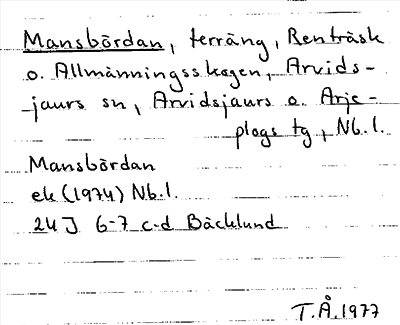 Mansbördan, terräng, Renträsk
o. Allmänningsskogen, Arvids-
-jaurs sn, Arvidsjaurs o. Arje-
plogs tg, Nb.l.
Mansbördan
ek (1974) Nb.l.
24J 6-7 c-d Bäcklund
T.Å. 1977